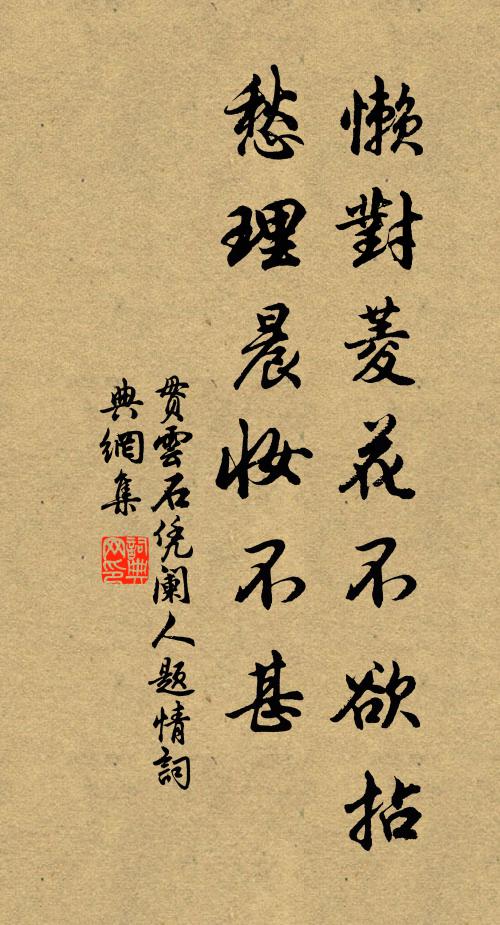 懒對菱花不欲拈
愁理晨妆不甚
贯雲石凭阑人题情詞
典網集
詞典网印